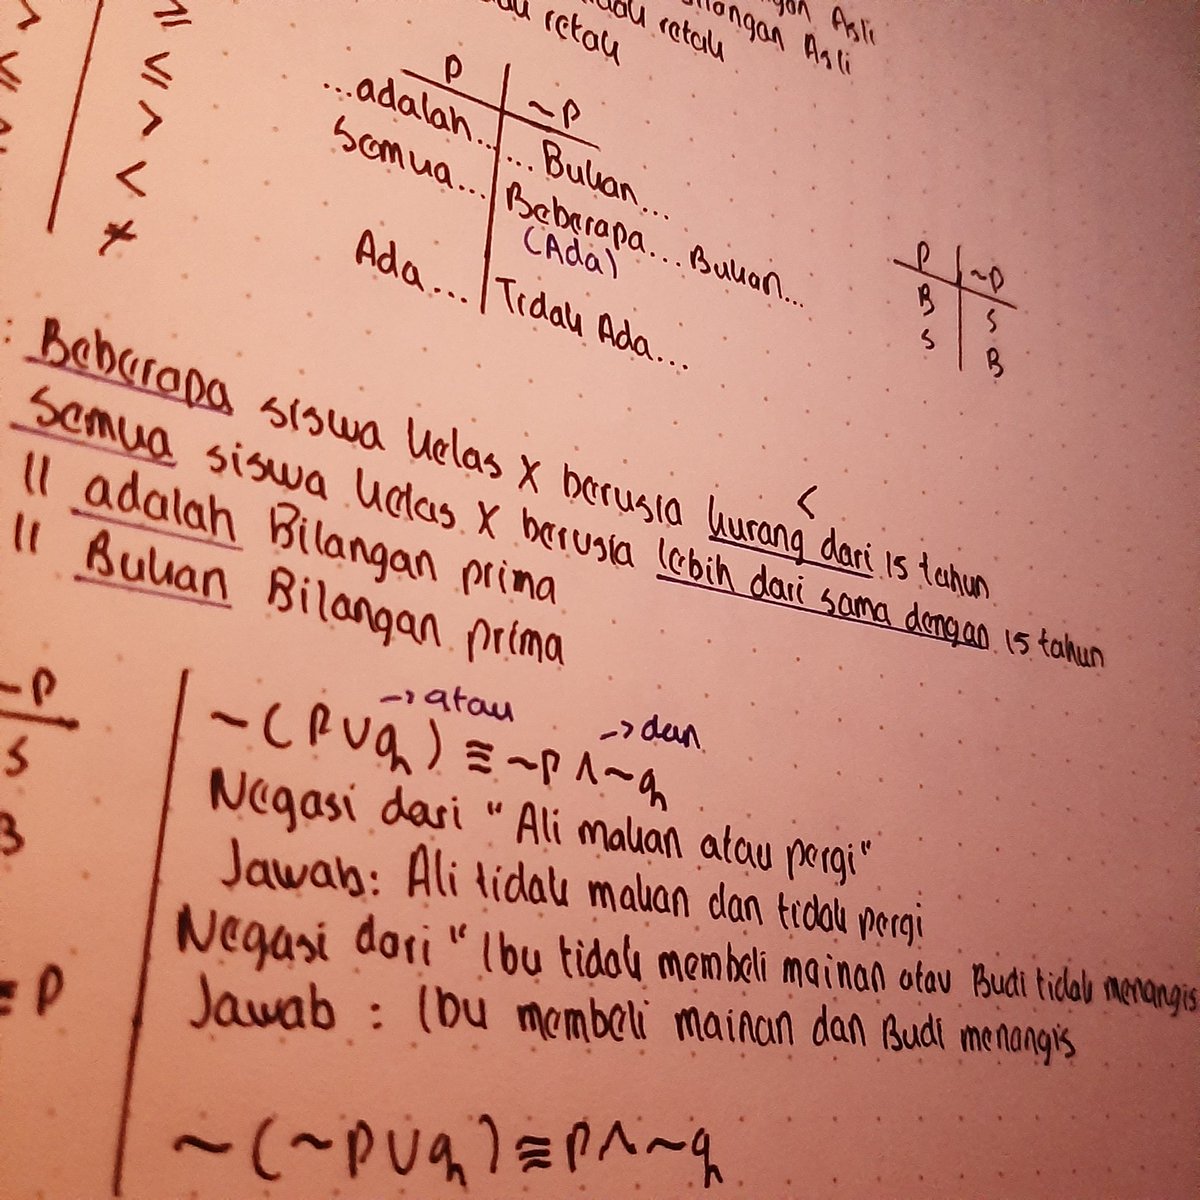 Asli
retak
Bilangan Asli
retak
> | ≥
≤ | ≤
>
<
≠
p | ~p
...adalah... | ... Bukan...
Semua... | Beberapa... Bukan...
(Ada)
Ada... | Tidak Ada...
p | ~p
B | S
S | B
: Beberapa siswa kelas X berusia kurang dari 15 tahun
<
Semua siswa kelas X berusia lebih dari sama dengan 15 tahun
11 adalah Bilangan prima
11 Bukan Bilangan prima
~p
S
B
≡ p
→ atau
→ dan
~(p ∪ q) ≡ ~p ∧ ~q
Negasi dari "Ali makan atau pergi"
Jawab: Ali tidak makan dan tidak pergi
Negasi dari "Ibu tidak membeli mainan atau Budi tidak menangis
Jawab : Ibu membeli mainan dan Budi menangis
~(~p ∪ q) ≡ p ∧ ~q